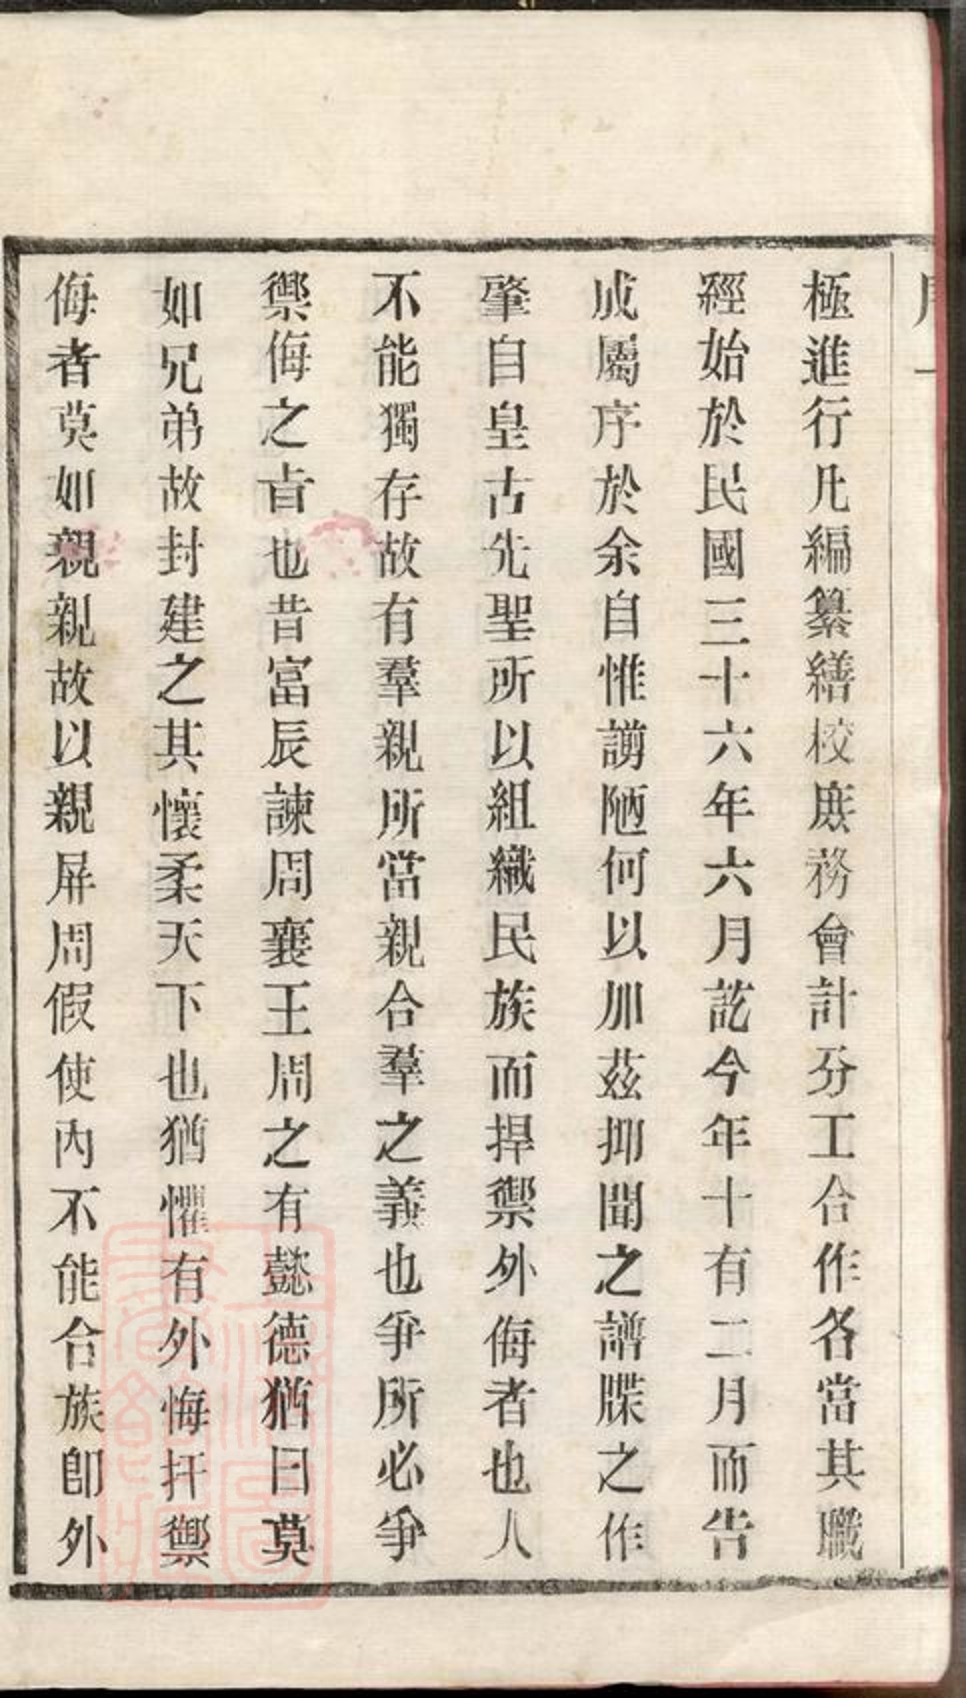 極進行凡編纂繕校庶務會計分工合作各當其職
經始於民國三十六年六月訖今年十有二月而告
成屬序於余自惟謭陋何以加茲抑聞之譜牒之作
肇自皇古先聖所以組織民族而捍禦外侮者也人
不能獨存故有羣親所當親合羣之義也爭所必爭
禦侮之旨也昔富辰諫周襄王周之有懿德猶曰莫
如兄弟故封建之其懷柔天下也猶懼有外侮扞禦
侮者莫如親親故以親屏周假使內不能合族卽外